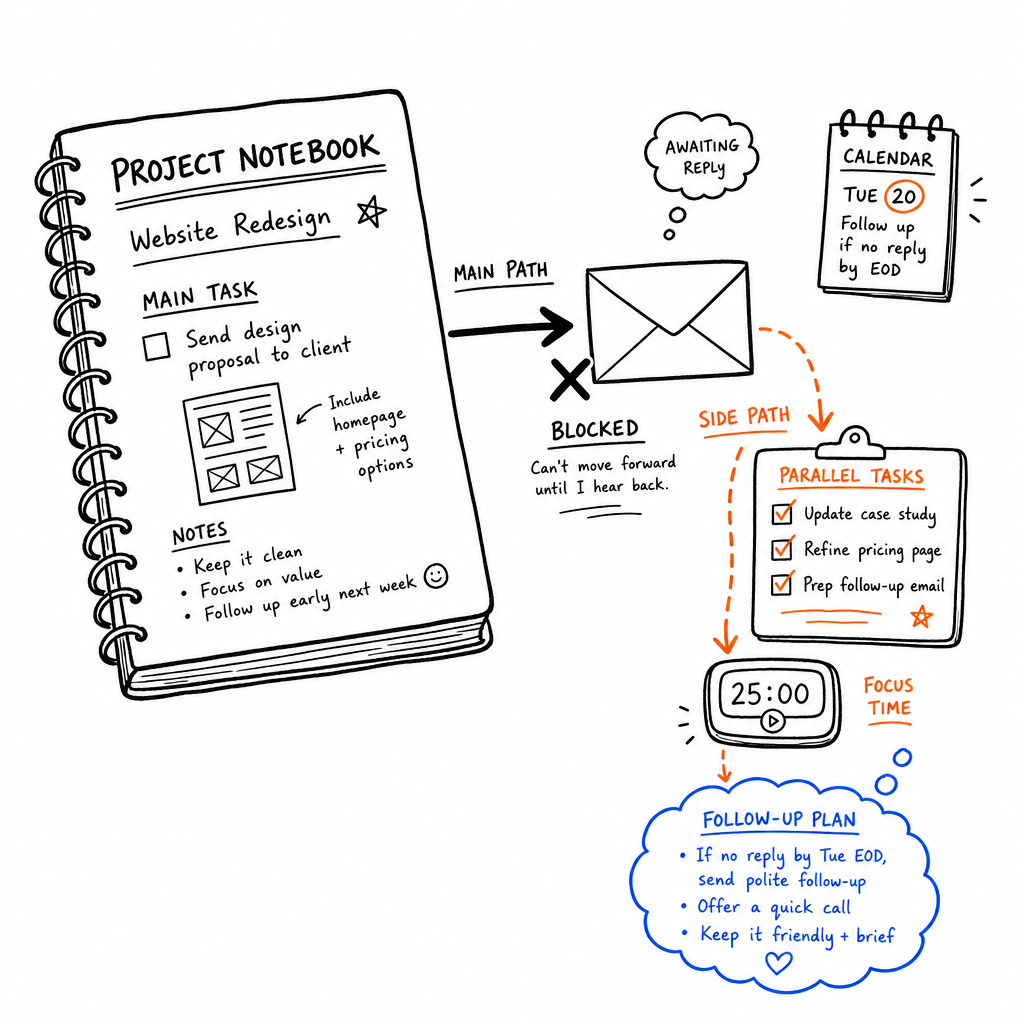 PROJECT NOTEBOOK
Website Redesign
MAIN TASK
Send design
proposal to client
Include
homepage
+ pricing
options
NOTES
• Keep it clean
• Focus on value
• Follow up early next week
MAIN PATH
AWAITING
REPLY
BLOCKED
Can't move forward
until I hear back.
CALENDAR
TUE 20
Follow up
if no reply
by EOD
SIDE PATH
PARALLEL TASKS
Update case study
Refine pricing page
Prep follow-up email
25:00
FOCUS
TIME
FOLLOW-UP PLAN
• If no reply by Tue EOD,
send polite follow-up
• Offer a quick call
• Keep it friendly + brief